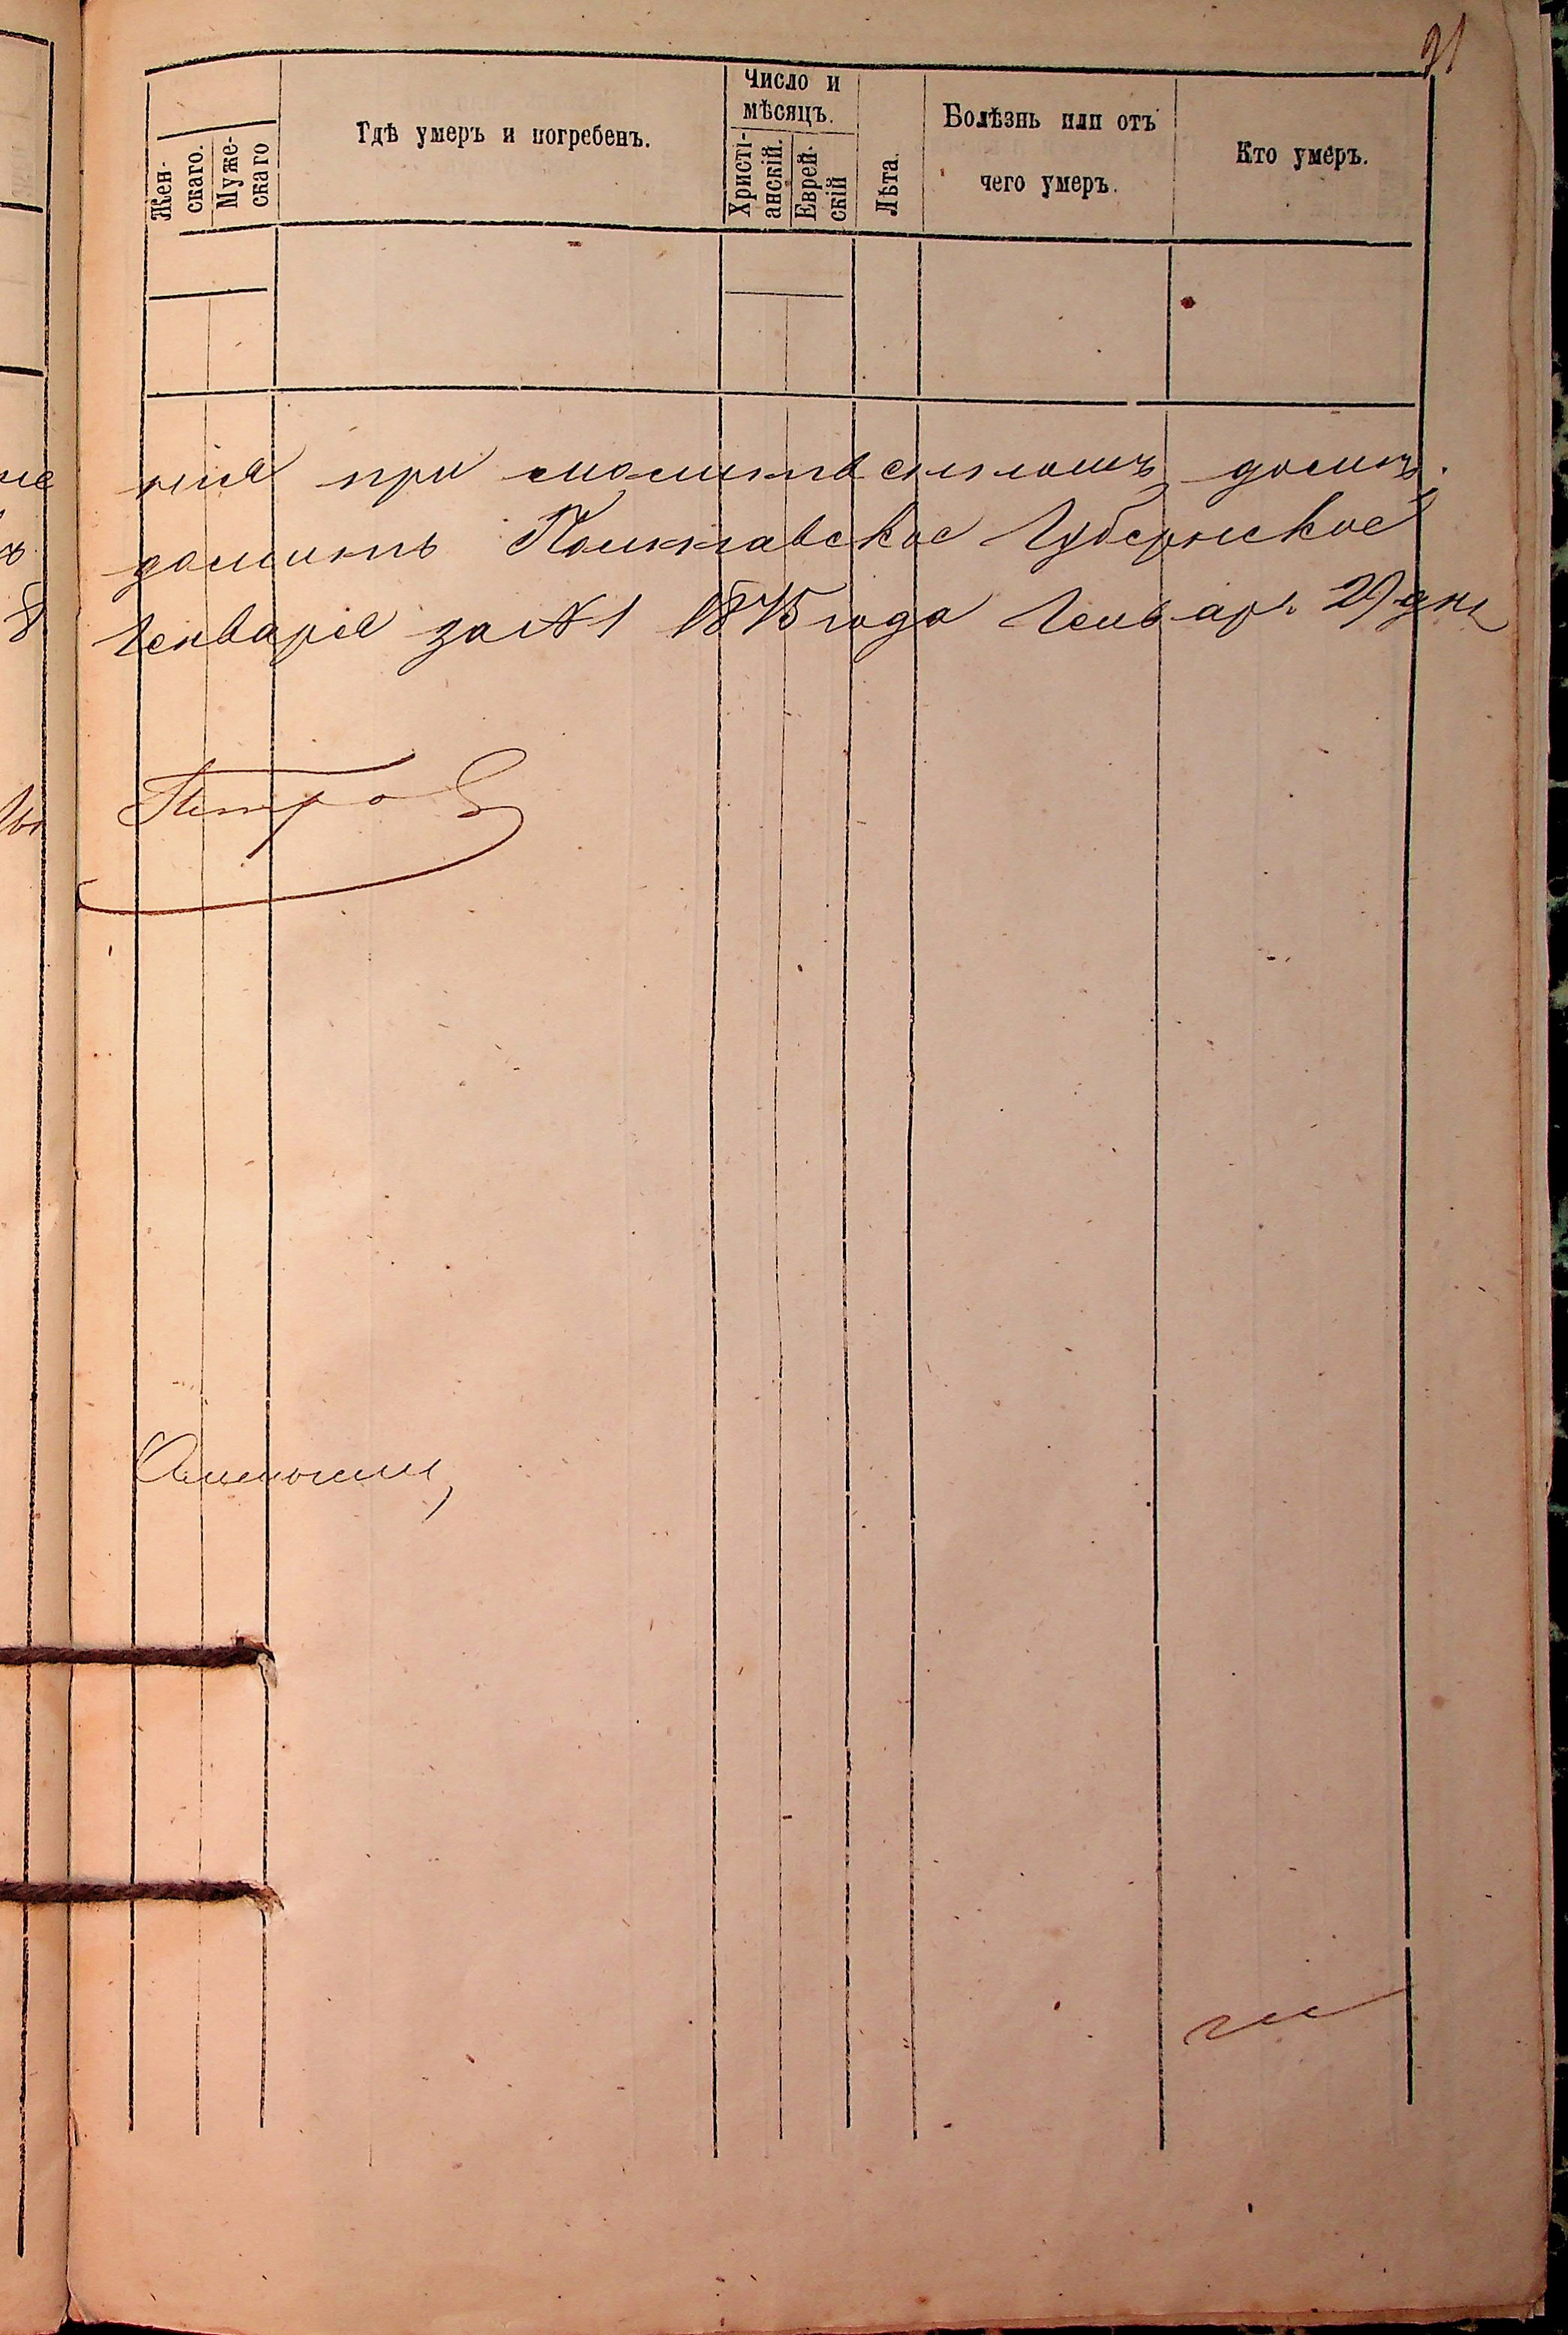 31
Жен-
скаго.
Муже-
скаго
Гдѣ умеръ и погребенъ.
Число и
мѣсяцъ.
Христі-
анскій.
Еврей-
скій
Лѣта.
Болѣзнь или отъ
чего умеръ.
Кто умеръ.
при молитвенномъ домѣ.
Полтавское Губернское
Генваря за № 1 1875 года Генваря 29 дня
Петров